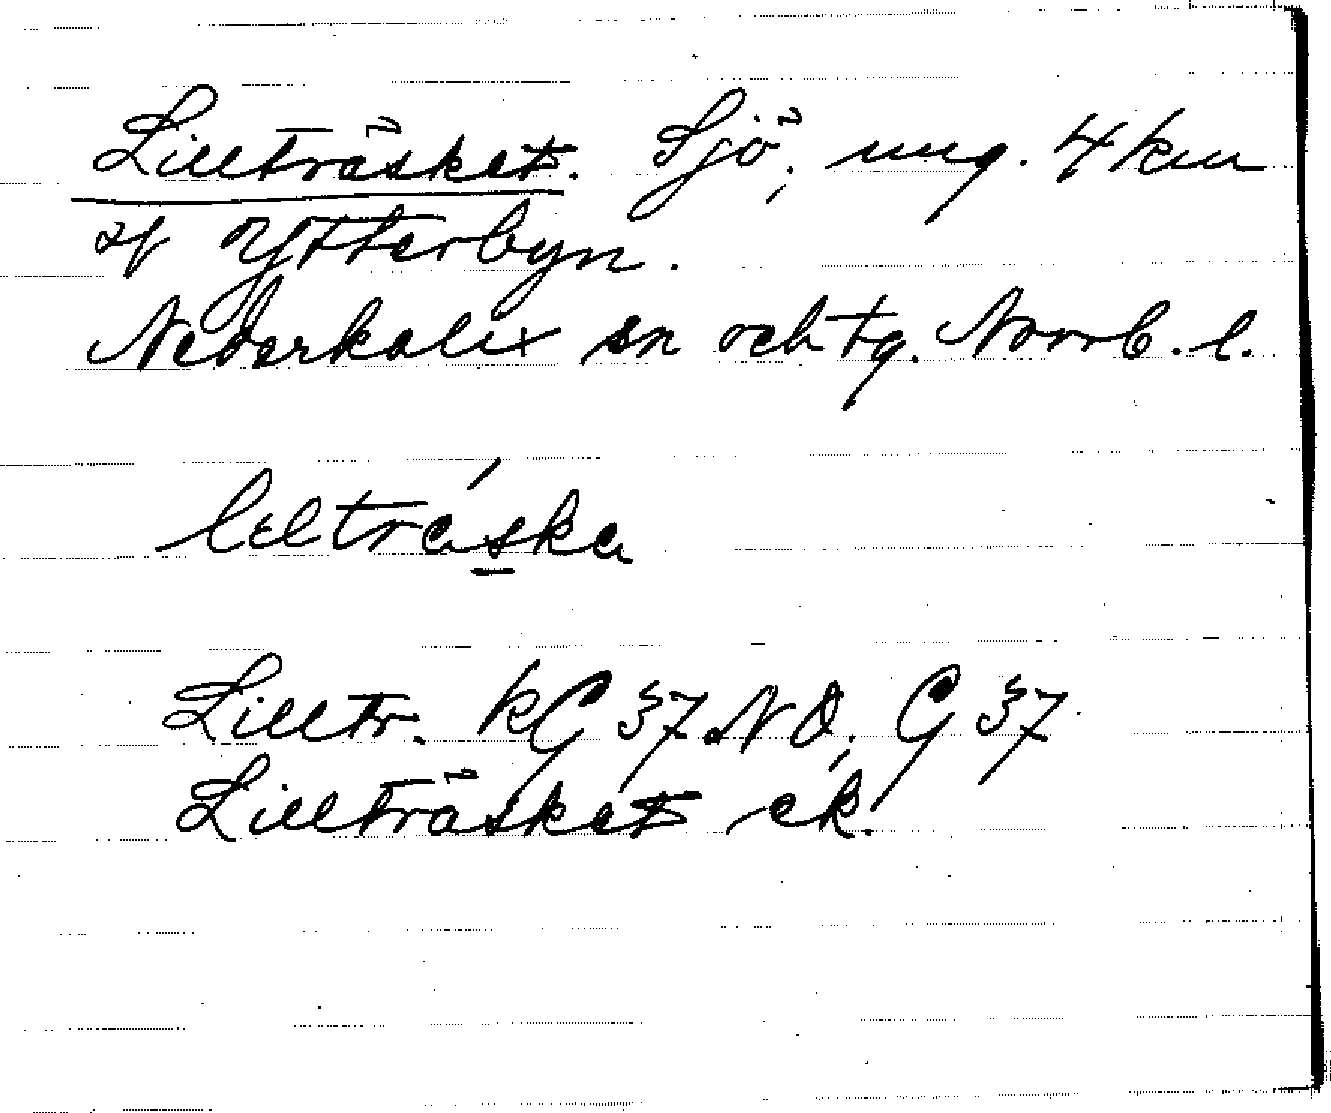 Lillträsket. Sjö, ung. 4 km
af Ytterbyn.
Nederkalix sn och tg. Norrb. l.
lɛltráska
Lilltr. kG 37 NO, G 37
Lillträsket ek.